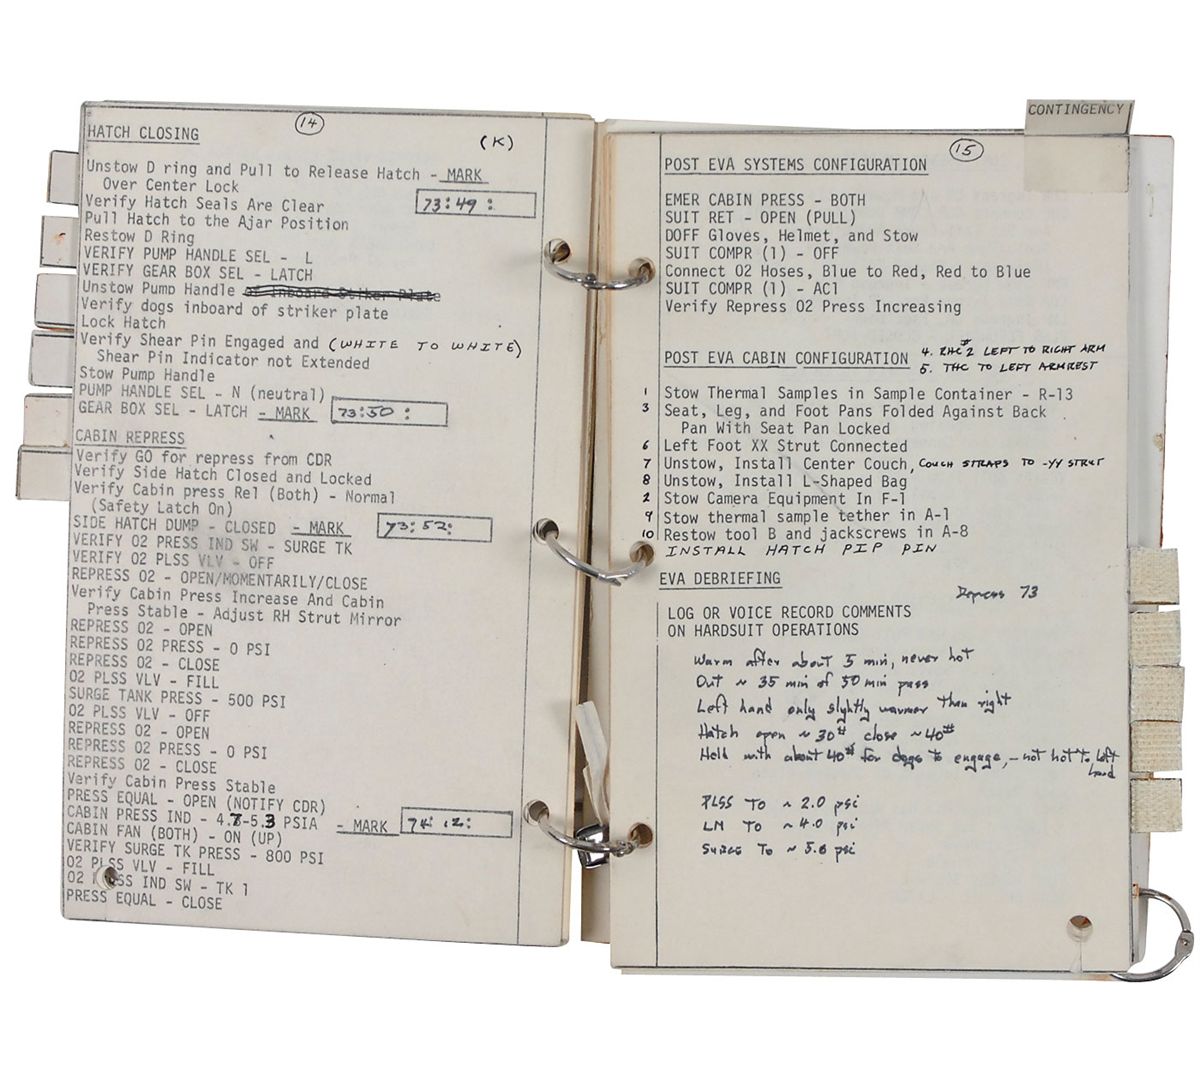 14
HATCH CLOSING
(K)
Unstow D ring and Pull to Release Hatch - MARK
Over Center Lock
Verify Hatch Seals Are Clear 73:49:
Pull Hatch to the Ajar Position
Restow D Ring
VERIFY PUMP HANDLE SEL - L
VERIFY GEAR BOX SEL - LATCH
Unstow Pump Handle at Inboard Striker Plate
Verify dogs inboard of striker plate
Lock Hatch
Verify Shear Pin Engaged and (WHITE TO WHITE)
Shear Pin Indicator not Extended
Stow Pump Handle
PUMP HANDLE SEL - N (neutral)
GEAR BOX SEL - LATCH - MARK 73:50:
CABIN REPRESS
Verify GO for repress from CDR
Verify Side Hatch Closed and Locked
Verify Cabin press Rel (Both) - Normal
(Safety Latch On)
SIDE HATCH DUMP - CLOSED - MARK 73:52:
VERIFY O2 PRESS IND SW - SURGE TK
VERIFY O2 PLSS VLV - OFF
REPRESS O2 - OPEN/MOMENTARILY/CLOSE
Verify Cabin Press Increase And Cabin
Press Stable - Adjust RH Strut Mirror
REPRESS O2 - OPEN
REPRESS O2 PRESS - 0 PSI
REPRESS O2 - CLOSE
O2 PLSS VLV - FILL
SURGE TANK PRESS - 500 PSI
O2 PLSS VLV - OFF
REPRESS O2 - OPEN
REPRESS O2 PRESS - 0 PSI
REPRESS O2 - CLOSE
Verify Cabin Press Stable
PRESS EQUAL - OPEN (NOTIFY CDR)
CABIN PRESS IND - 4.7-5.3 PSIA - MARK 74:12:
CABIN FAN (BOTH) - ON (UP)
VERIFY SURGE TK PRESS - 800 PSI
O2 PLSS VLV - FILL
O2 PRESS IND SW - TK 1
PRESS EQUAL - CLOSE
CONTINGENCY
15
POST EVA SYSTEMS CONFIGURATION
EMER CABIN PRESS - BOTH
SUIT RET - OPEN (PULL)
DOFF Gloves, Helmet, and Stow
SUIT COMPR (1) - OFF
Connect O2 Hoses, Blue to Red, Red to Blue
SUIT COMPR (1) - AC1
Verify Repress O2 Press Increasing
POST EVA CABIN CONFIGURATION 4. RHC #2 LEFT TO RIGHT ARM
5. THC TO LEFT ARMREST
1 Stow Thermal Samples in Sample Container - R-13
3 Seat, Leg, and Foot Pans Folded Against Back
Pan With Seat Pan Locked
6 Left Foot XX Strut Connected
7 Unstow, Install Center Couch, COUCH STRAPS TO -YY STRUT
8 Unstow, Install L-Shaped Bag
2 Stow Camera Equipment In F-1
9 Stow thermal sample tether in A-1
10 Restow tool B and jackscrews in A-8
INSTALL HATCH PIP PIN
EVA DEBRIEFING
Repress 73
LOG OR VOICE RECORD COMMENTS
ON HARDSUIT OPERATIONS
Warm after about 5 min, never hot
Out ~ 35 min of 50 min pass
Left hand only slightly warmer than right
Hatch open ~30# close ~40#
Held with about 40# for dogs to engage, - not hot to left
hand
PLSS TO ~ 2.0 psi
LM TO ~ 4.0 psi
SURGE TO ~ 5.0 psi